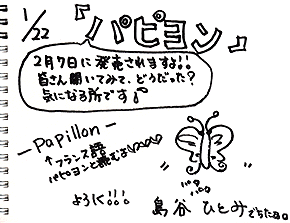 1/22
『パピヨン』
2月7日に発売されますよ!!
皆さん聞いてみて、どうだった?
気になる所です♪
-Papillon-
↑フランス語
パピヨンと読むよ
ように!!!
島谷ひとみでらたoo